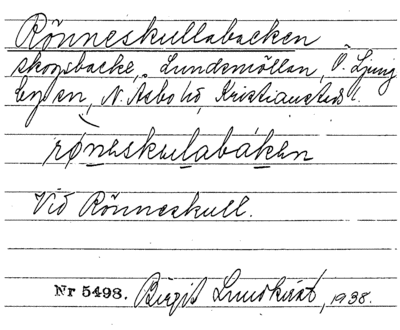 Rönneskullabacken
skogsbacke, Lundsmöllan, Ö. Ljung
byn, N. Åsbo hd, Kristianstads l.
rønəskulabákən
Vid Rönneskull.
Nr 5498. Birgit Lundkvist, 1938.